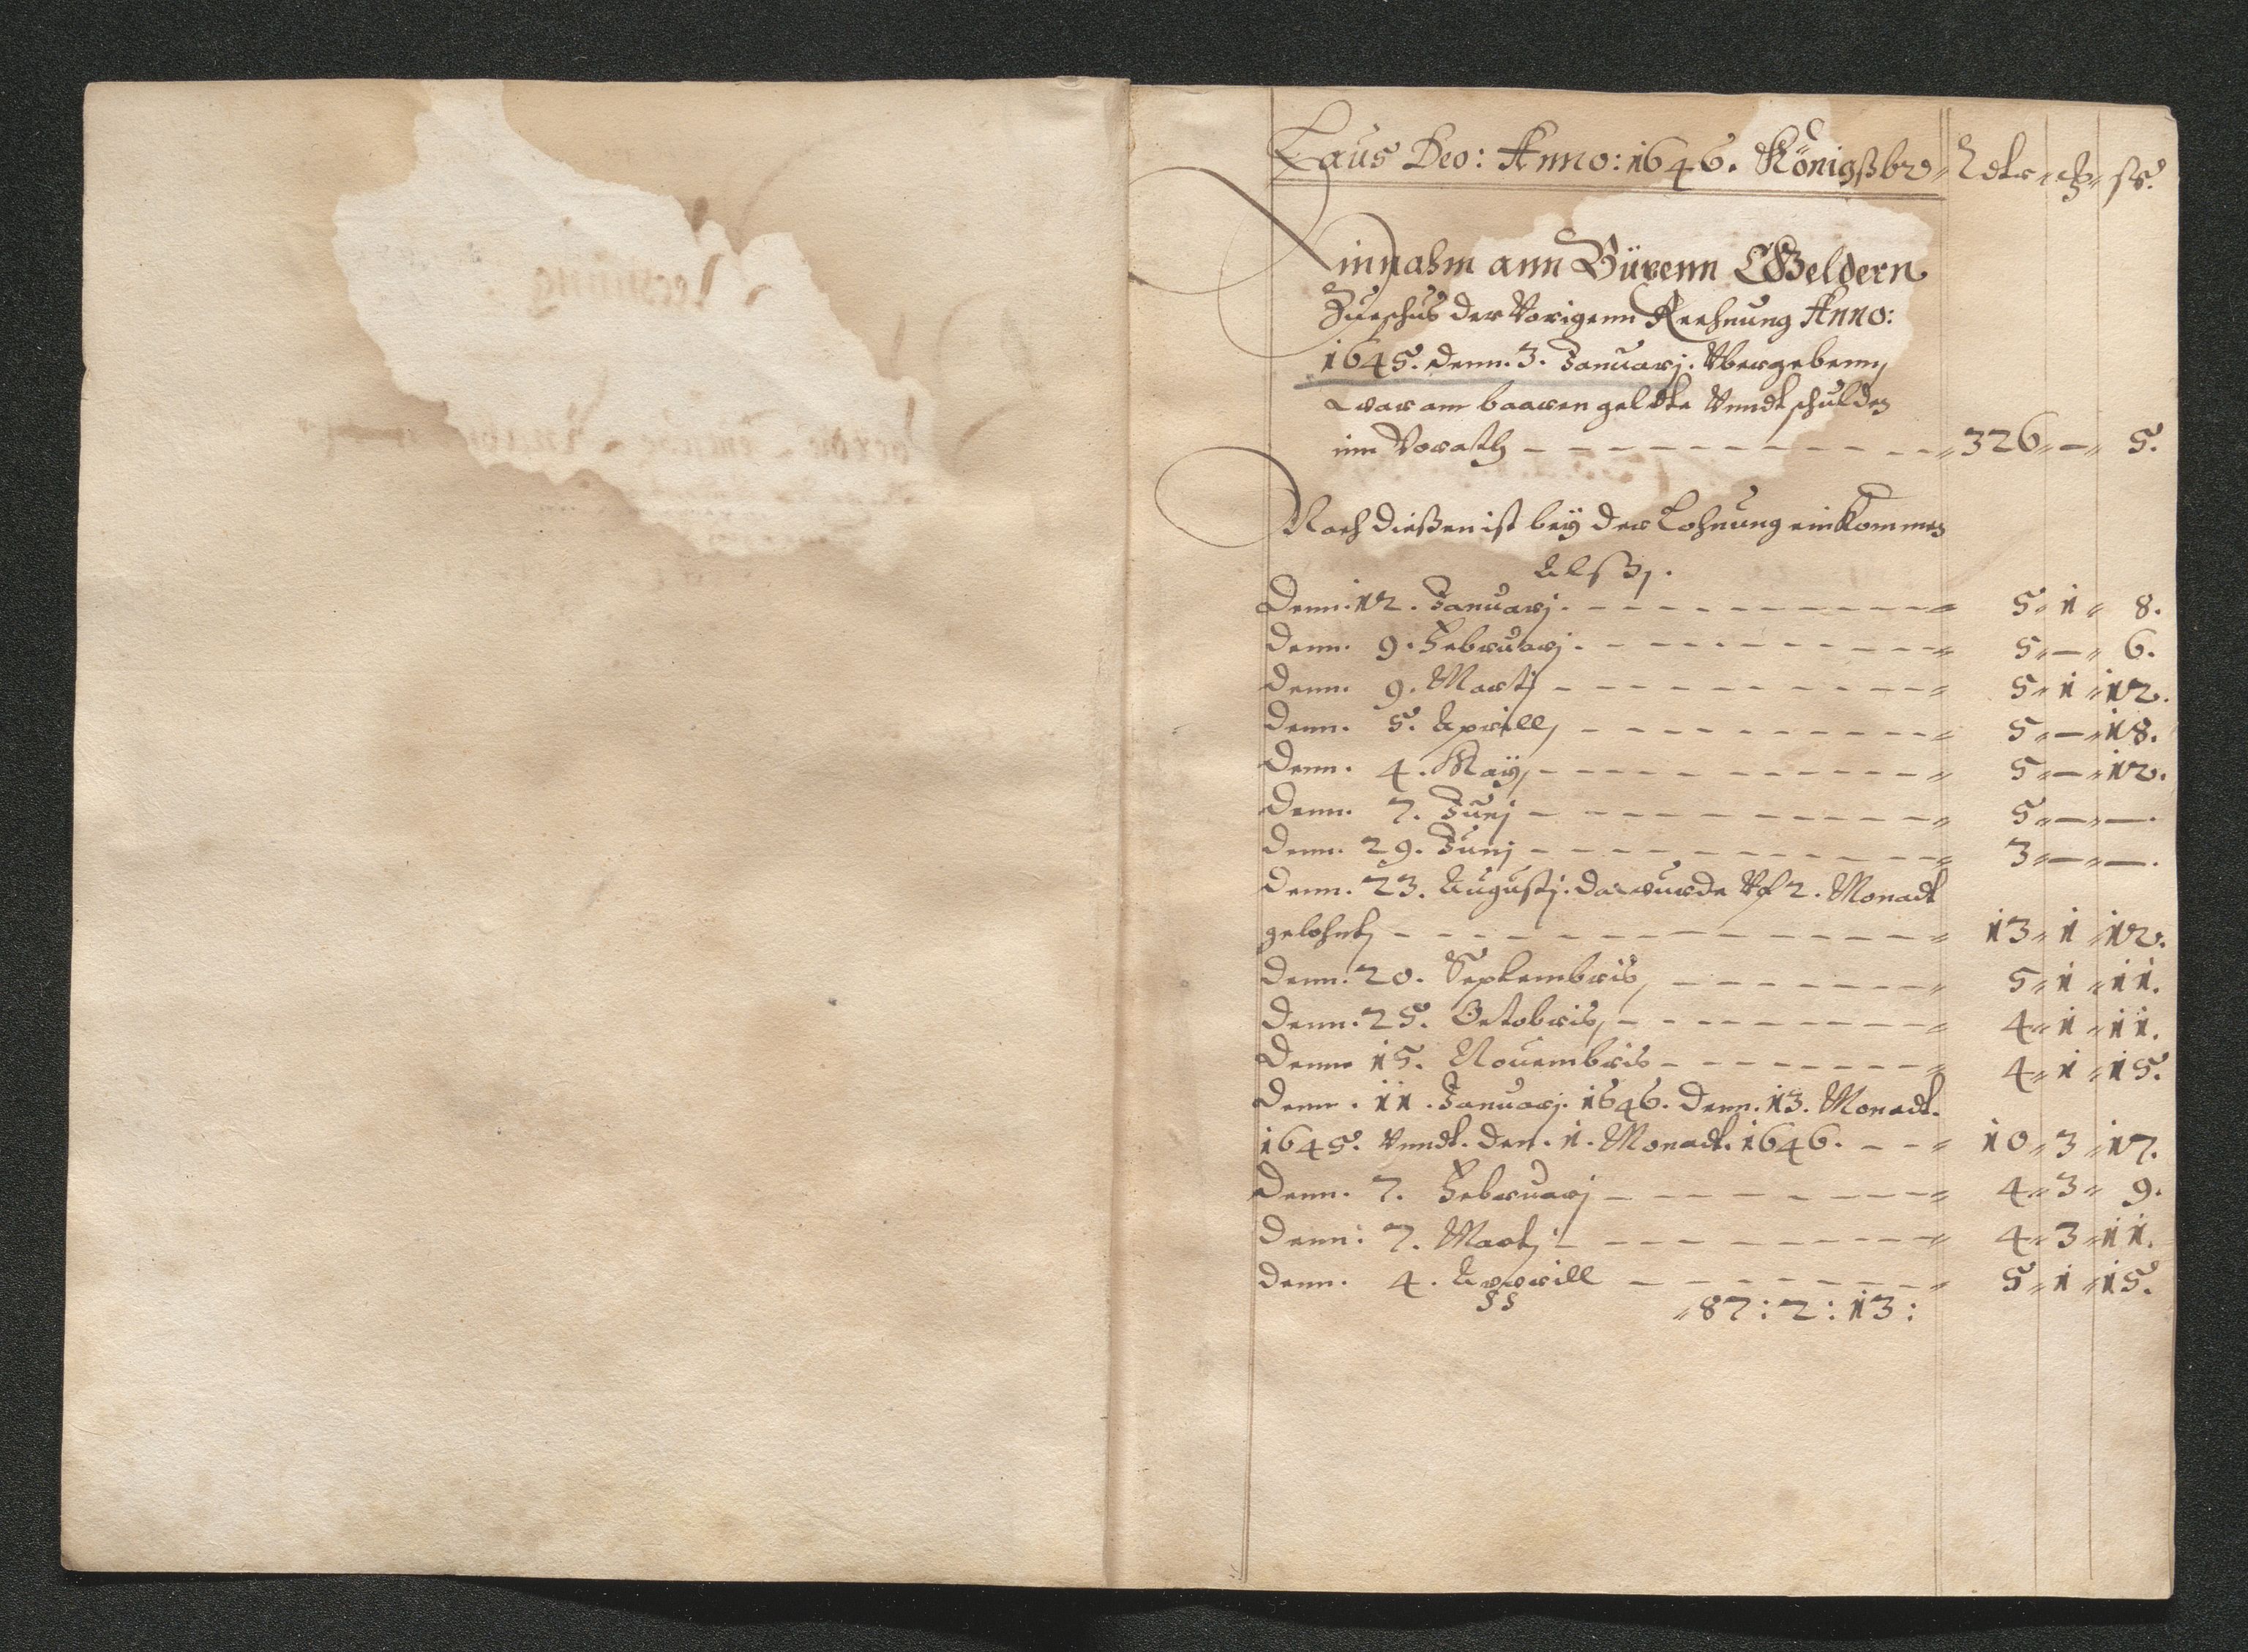 Laus Deo: Anno: 1646. Königsbr" Rdlr " " ß.
Einnahm ann Büxenn Geldern
Zueschus der Vorigenn Rechnung Anno:
1645. denn. 3. Januarj. Vbergebenn,
war am baaren geldte Vnndt schulden
inn Vorath - - - - - - - - - - " 326 " — " 5.
Nach dießen ist beÿ der Lohnung einkommen
Alß,.
Denn. 12. Januarj. - - - - - - - - - " 5 " 1 " 8.
Denn. 9. Februarj. - - - - - - - - - " 5 " — " 6.
Denn. 9. Martj - - - - - - - - - " 5 " 1 " 12.
Denn. 5. Aprill, - - - - - - - - - " 5 " — " 18.
Denn. 4. Maÿ, - - - - - - - - - " 5 " — " 12.
Denn. 7. Junj - - - - - - - - - " 5 " — " —.
Denn. 29. Junj - - - - - - - - - " 3 " — " —.
Denn. 23. Augustj. da wurde Vf 2. Monadt
gelohnt, - - - - - - - - - - - " 13 " 1 " 12.
Denn. 20. Septembris, - - - - - - - " 5 " 1 " 11.
Denn. 25. Octobris, - - - - - - - - " 4 " 1 " 11.
Denn 15. Nouembris - - - - - - - " 4 " 1 " 15.
Denn. 11. Januarj. 1646. Denn. 13. Monadt.
1645. Vnndt. den. 1. Monadt. 1646. - - " 10 " 3 " 17.
Denn. 7. Februarj - - - - - - - - " 4 " 3 " 9.
Denn: 7. Martj - - - - - - - - - " 4 " 3 " 11.
Denn. 4. Apprill - - - - - - - - " 5 " 1 " 15.
" 87 : 2 : 13 :